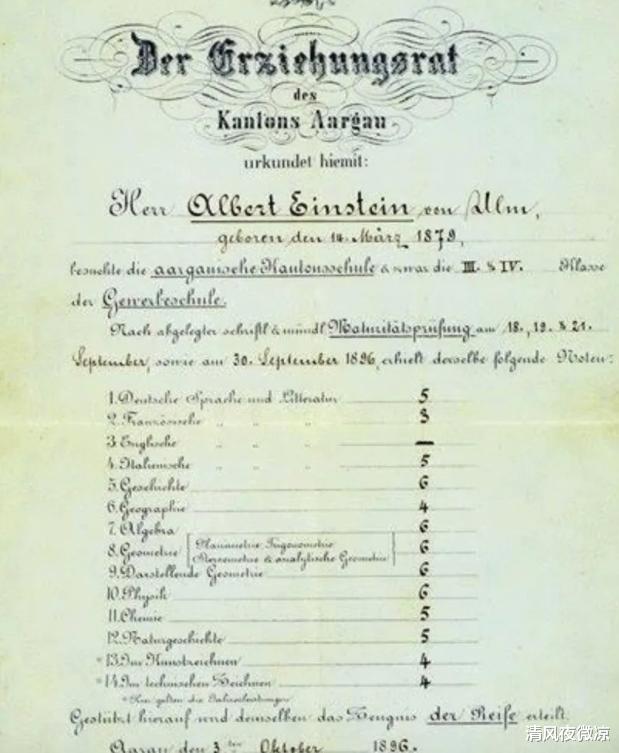 Der Erziehungsrat
des
Kantons Aargau
urkundet hiemit:
Herr Albert Einstein von Ulm,
geboren den 14. März 1879,
besuchte die aargauische Kantonsschule & zwar die III. & IV. Klasse
der Gewerbeschule.
Nach abgelegter schriftl. & mündl. Maturitätsprüfung am 18., 19. & 21.
September, sowie am 30. September 1896, erhielt derselbe folgende Noten:
1. Deutsche Sprache und Litteratur 5
2. Französische „ „ „ 3
3. Englische „ „ „ —
4. Italienische „ „ „ 5
5. Geschichte 6
6. Geographie 4
7. Algebra 6
8. Geometrie [Planimetrie, Trigonometrie 6
Stereometrie & analytische Geometrie]
9. Darstellende Geometrie 6
10. Physik 6
11. Chemie 5
12. Naturgeschichte 5
* 13. Im Kunstzeichnen 4
* 14. Im technischen Zeichnen 4
* Hier gelten die Jahresleistungen.
Gestützt hierauf wird demselben das Zeugnis der Reife erteilt.
Aarau den 3ten Oktober 1896.
清风夜微凉